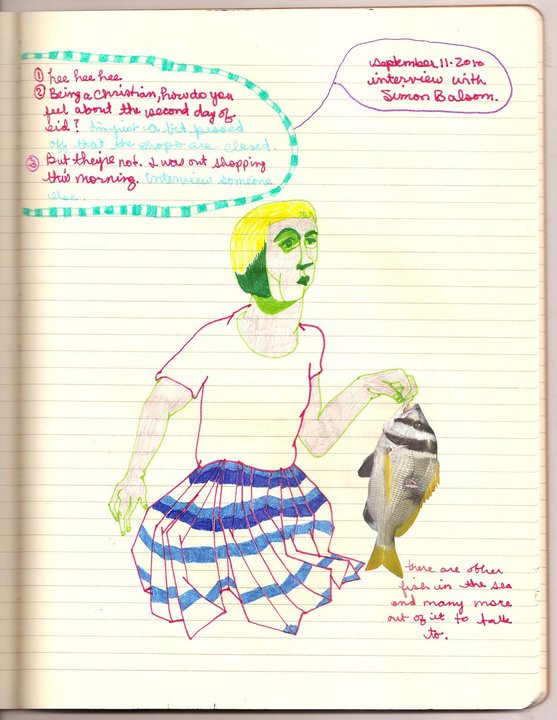 ① hee hee hee
② Being a Christian, how do you
feel about the second day of
eid? I'm just a bit pissed
off that the shops are closed.
③ But they're not. I was out shopping
this morning. Interview someone
else.
september.11.2010
interview with
Simon Balsom.
there are other
fish in the sea
and many more
out of it to talk
to.